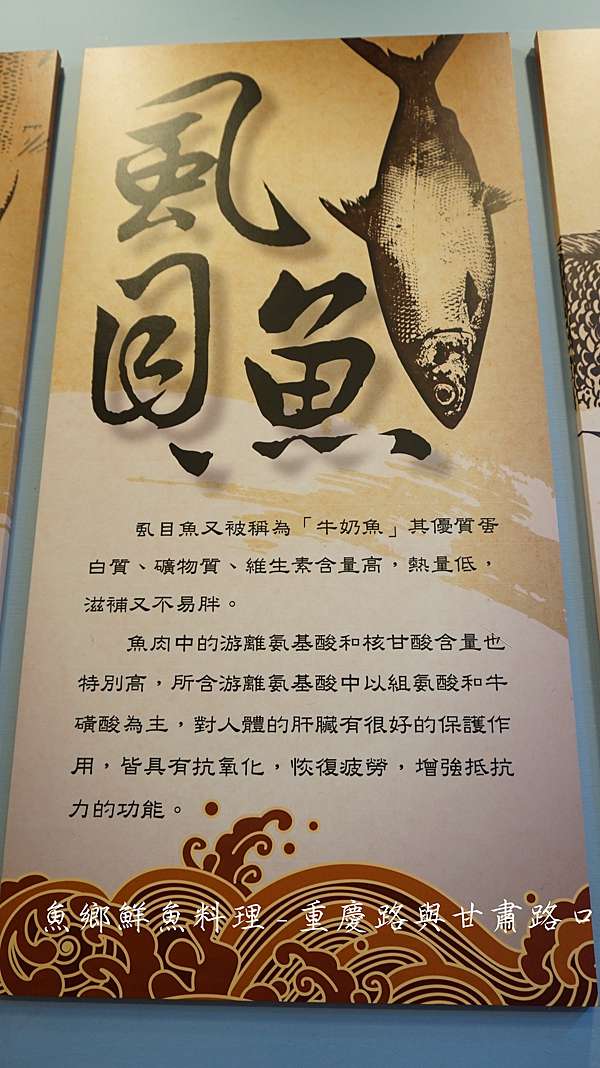 虱目魚
虱目魚又被稱為「牛奶魚」其優質蛋
白質、礦物質、維生素含量高，熱量低，
滋補又不易胖。
魚肉中的游離氨基酸和核甘酸含量也
特別高，所含游離氨基酸中以組氨酸和牛
磺酸為主，對人體的肝臟有很好的保護作
用，皆具有抗氧化，恢復疲勞，增強抵抗
力的功能。
魚鄉鮮魚料理-重慶路與甘肅路口